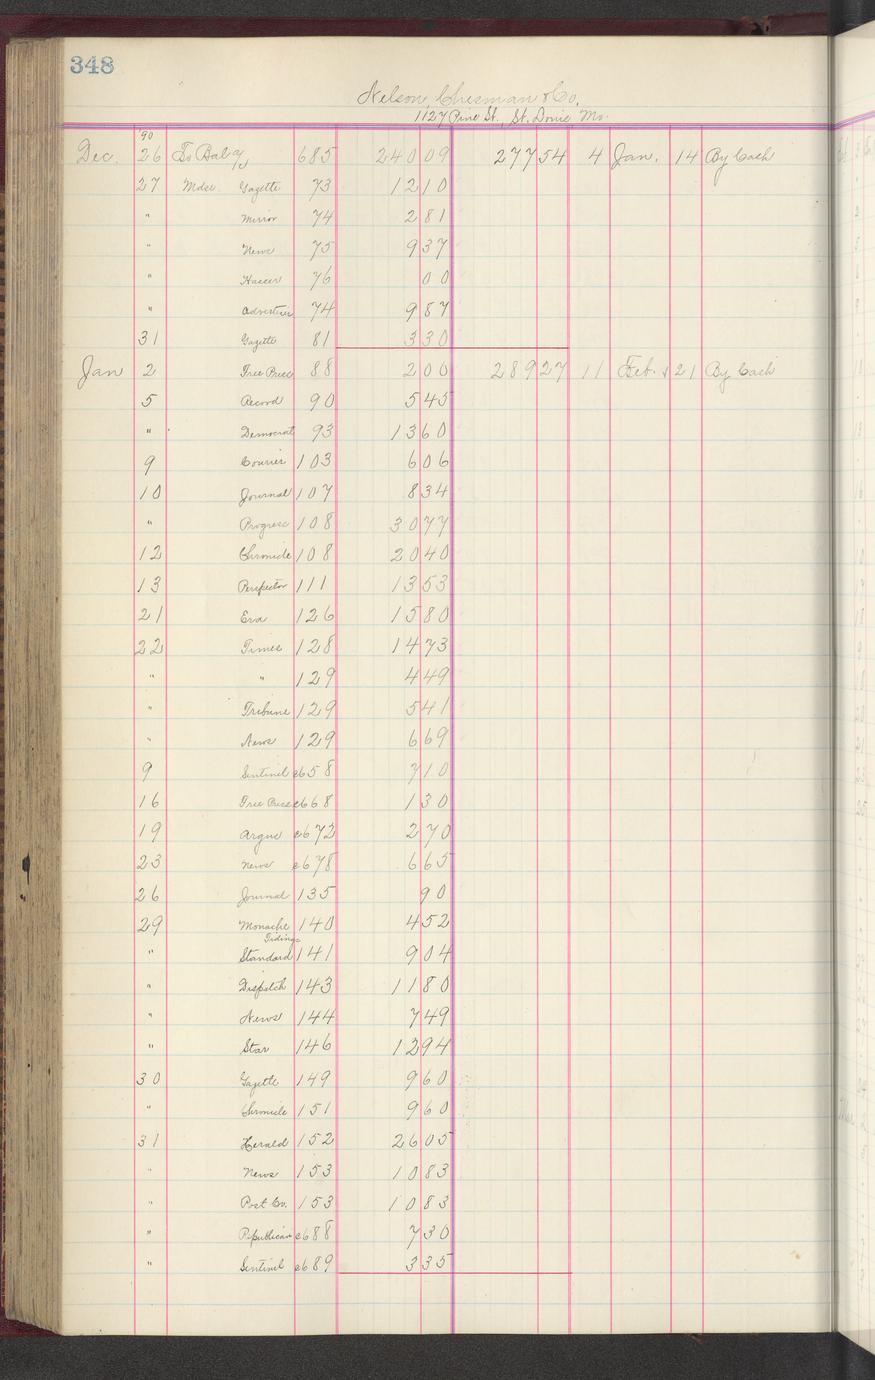 348
Nelson, Chesman & Co.
1127 Pine St., St. Louis Mo.
90
Dec. 26 To Bal a/c 685 240 09 277 54 4 Jan. 14 By Cash
27 Mdse. Gazette 73 12 10
" Mirror 74 2 81
" News 75 9 37
" 76 00
" Advertiser 74 9 87
31 Gazette 81 3 30
Jan 2 Free Press 88 2 00 289 27 11 Feb. 21 By Cash
5 Record 90 5 45
" Democrat 93 13 60
9 Courier 103 6 06
10 Journal 107 8 34
" Progress 108 30 77
12 Chronicle 108 20 40
13 111 13 53
21 Era 126 15 80
22 Times 128 14 73
" " 129 4 49
" Tribune 129 5 41
" News 129 6 69
9 Sentinel c658 7 10
16 Free Press c668 1 30
19 Argus c672 2 70
23 News c678 6 65
26 Journal 135 90
29 Monache 140 4 52
Tidings
" Standard 141 9 04
" Dispatch 143 11 80
" News 144 7 49
" Star 146 12 94
30 Gazette 149 9 60
" Chronicle 151 9 60
31 Herald 152 26 05
" News 153 10 83
" Post Co. 153 10 83
" Republican c688 7 30
" Sentinel c689 3 35